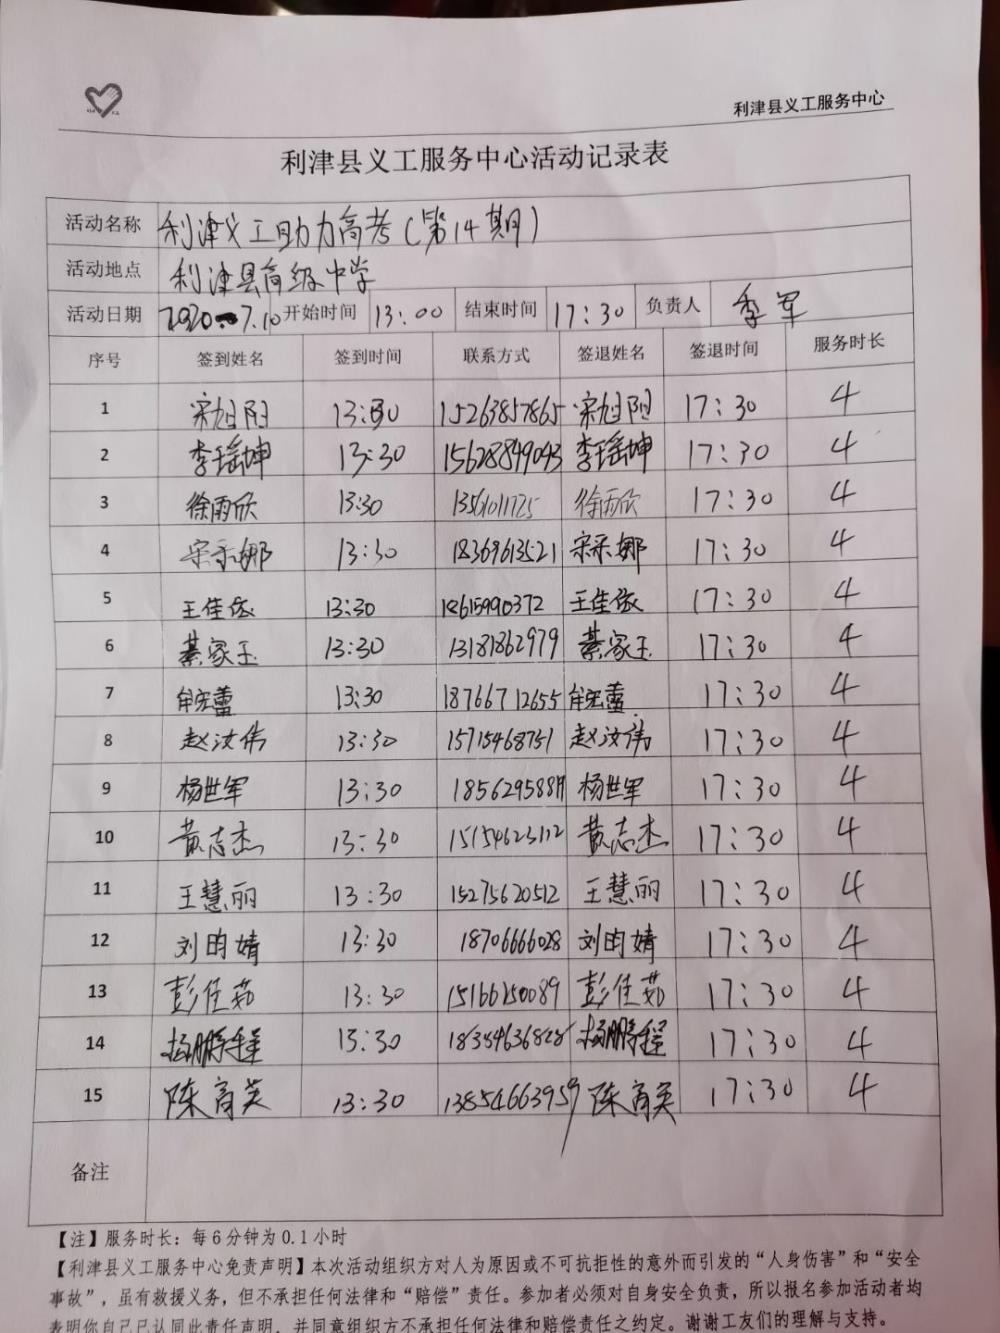 利津县义工服务中心
利津县义工服务中心活动记录表
活动名称 利津义工助力高考(第14期)
活动地点 利津县高级中学
活动日期 2020.7.10 开始时间 13:00 结束时间 17:30 负责人 李军
序号 签到姓名 签到时间 联系方式 签退姓名 签退时间 服务时长
1 宋旭阳 13:30 15263857865 宋旭阳 17:30 4
2 李瑶坤 13:30 15628849043 李瑶坤 17:30 4
3 徐雨欣 13:30 13561011725 徐雨欣 17:30 4
4 宋采娜 13:30 18369613521 宋采娜 17:30 4
5 王佳依 13:30 18615990372 王佳依 17:30 4
6 綦家玉 13:30 13181862979 綦家玉 17:30 4
7 牟宏蕾 13:30 18766712655 牟宏蕾 17:30 4
8 赵汝伟 13:30 15715468751 赵汝伟 17:30 4
9 杨世军 13:30 杨世军 17:30 4
10 黄志杰 13:30 15154623112 黄志杰 17:30 4
11 王慧丽 13:30 15275620512 王慧丽 17:30 4
12 刘昀婧 13:30 18706666028 刘昀婧 17:30 4
13 彭佳茹 13:30 15166250089 彭佳茹 17:30 4
14 杨鹏程 13:30 杨鹏程 17:30 4
15 陈育英 13:30 13854663959 陈育英 17:30 4
备注
【注】服务时长：每6分钟为0.1小时
【利津县义工服务中心免责声明】本次活动组织方对人为原因或不可抗拒性的意外而引发的“人身伤害”和“安全
事故”，虽有救援义务，但不承担任何法律和“赔偿”责任。参加者必须对自身安全负责，所以报名参加活动者均
表明你自己已认同此责任声明，并同意组织方不承担任何法律和赔偿责任之约定。谢谢工友们的理解与支持。